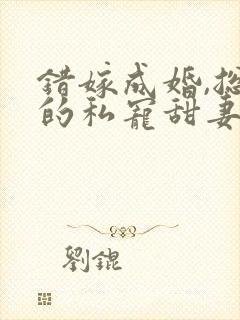 錯嫁成婚,
的私寵甜妻
劉錕